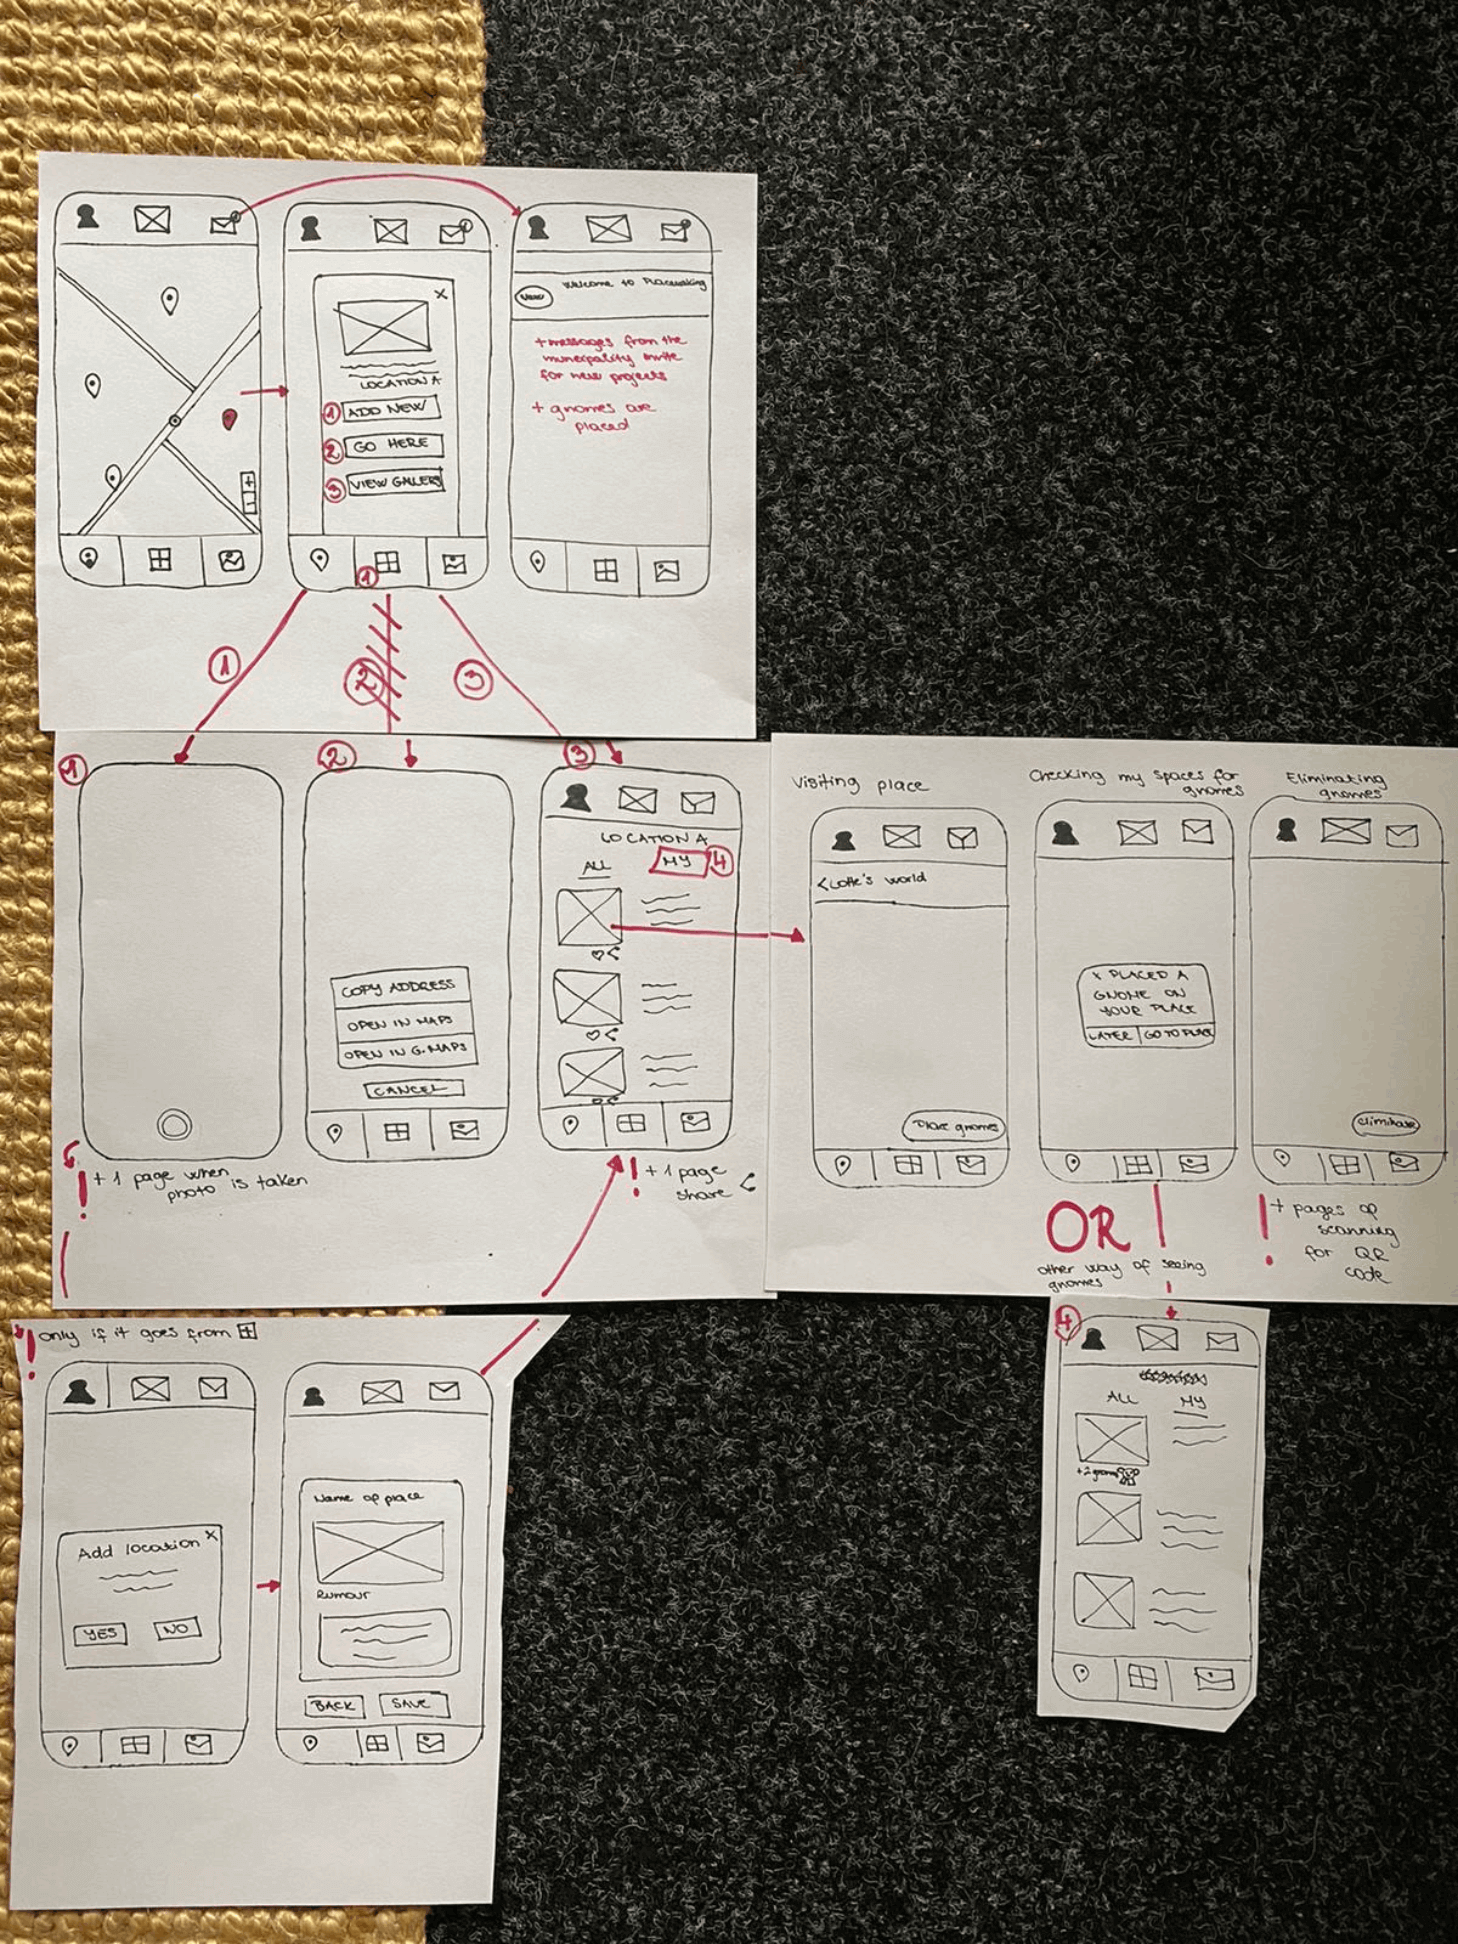 Welcome to Placemaking
+ messages from the
municipality invite
for new projects
+ gnomes are
placed
X
LOCATION A
1 ADD NEW
2 GO HERE
3 VIEW GALLERY
+
-
1
1
2
3
1
2
3
COPY ADDRESS
OPEN IN MAPS
OPEN IN G. MAPS
CANCEL
LOCATION A
ALL
MY 4
! + 1 page when
photo is taken
! + 1 page
share
Visiting place
< Lotte's world
Place gnomes
Checking my spaces for
gnomes
X PLACED A
GNOME ON
YOUR PLACE
LATER GO TO PLACE
Eliminating
gnomes
eliminate
OR
other way of seeing
gnomes
! + pages of
scanning
for QR
code
! only if it goes from
Add location X
YES NO
Name of place
Rumour
BACK SAVE
4
ALL MY